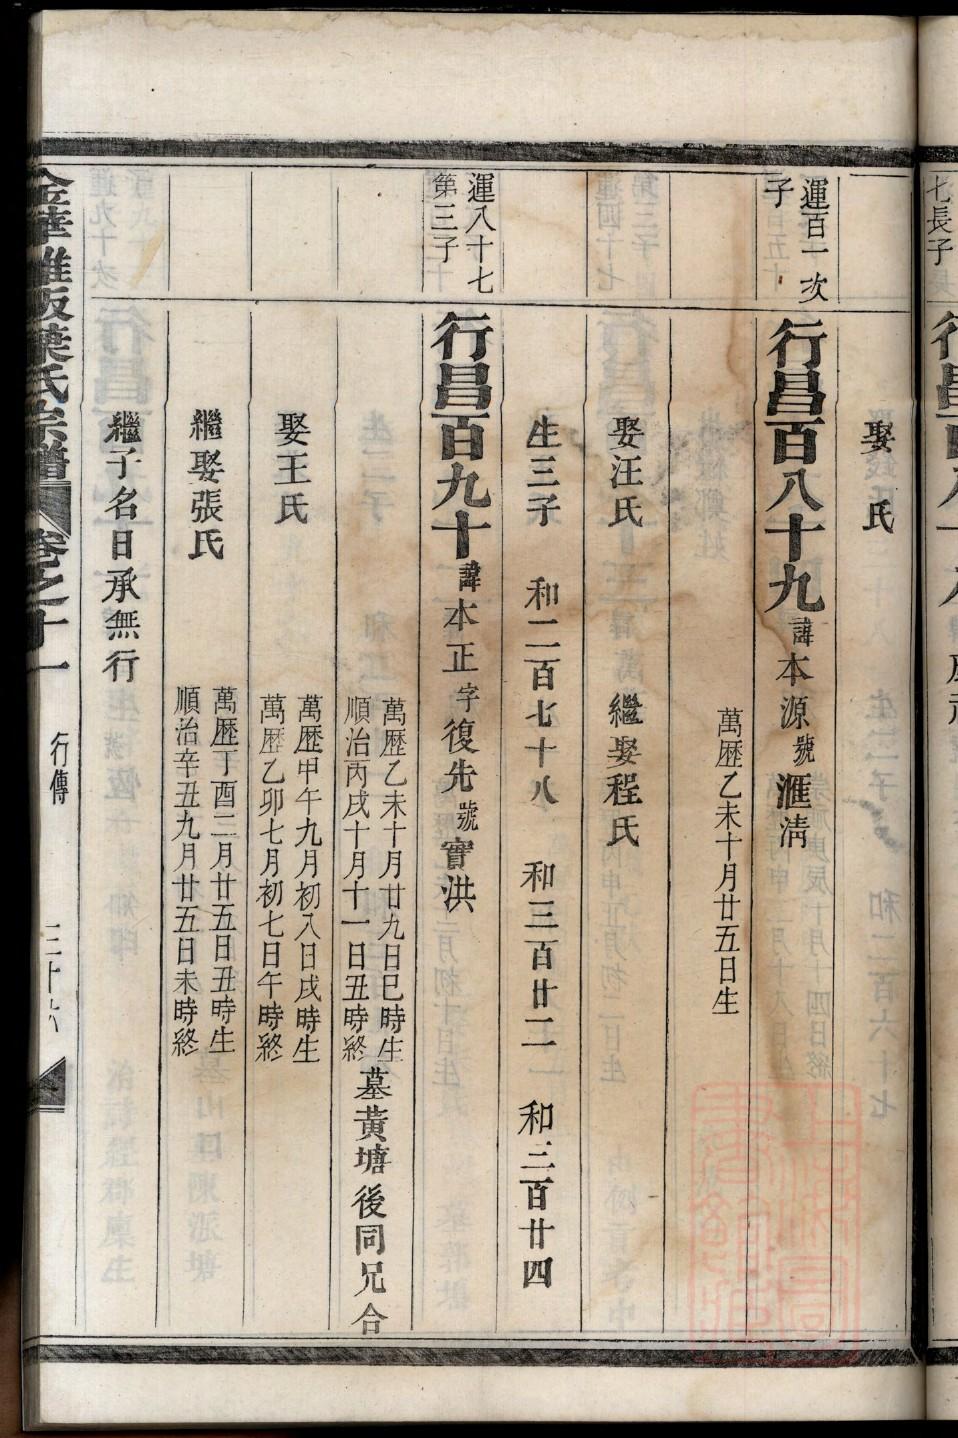 七長子
娶 氏
運百一次
子
行昌百八十九諱本源號滙清
萬歷乙未十月廿五日生
娶汪氏 繼娶程氏
生三子 和二百七十八 和三百廿二 和三百廿四
運八十七
第三子
行昌百九十諱本正字復先號實洪
萬歷乙未十月廿九日巳時生
順治丙戌十月十一日丑時終
墓黃塘後同兄合
娶王氏
萬歷甲午九月初八日戌時生
萬歷乙卯七月初七日午時終
繼娶張氏
萬歷丁酉二月廿五日丑時生
順治辛丑九月廿五日未時終
繼子名日承無行
金華 阪葉氏宗譜 卷之十一 行傳 三十六